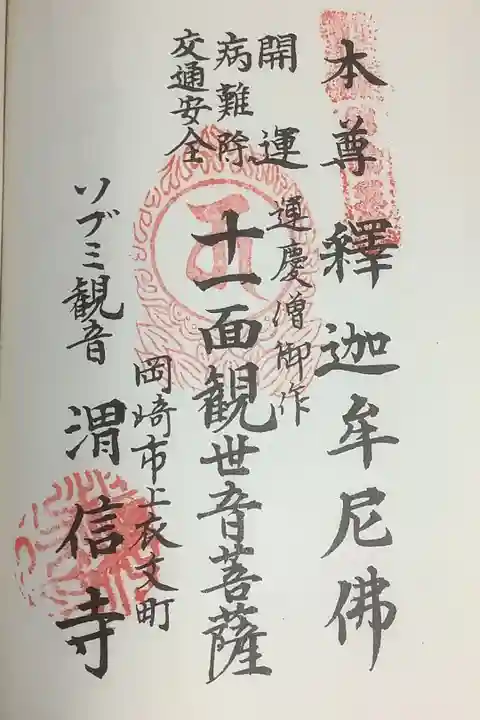 本尊釋迦牟尼佛
運慶僧御作
開運
十一面観世音菩薩
病難除
交通安全
岡崎市上衣文町
ソブミ観音
渭信寺